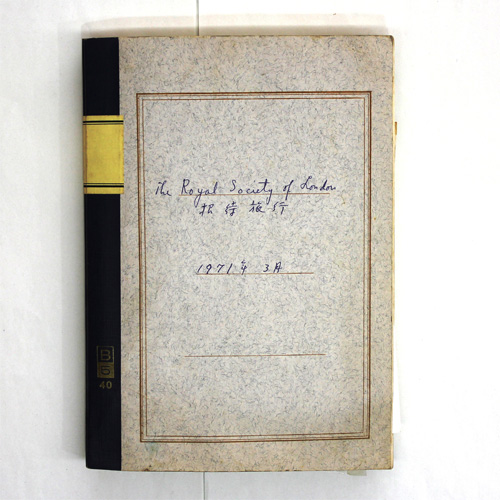 The Royal Society of London
招待旅行
1971年 3月
B5
40